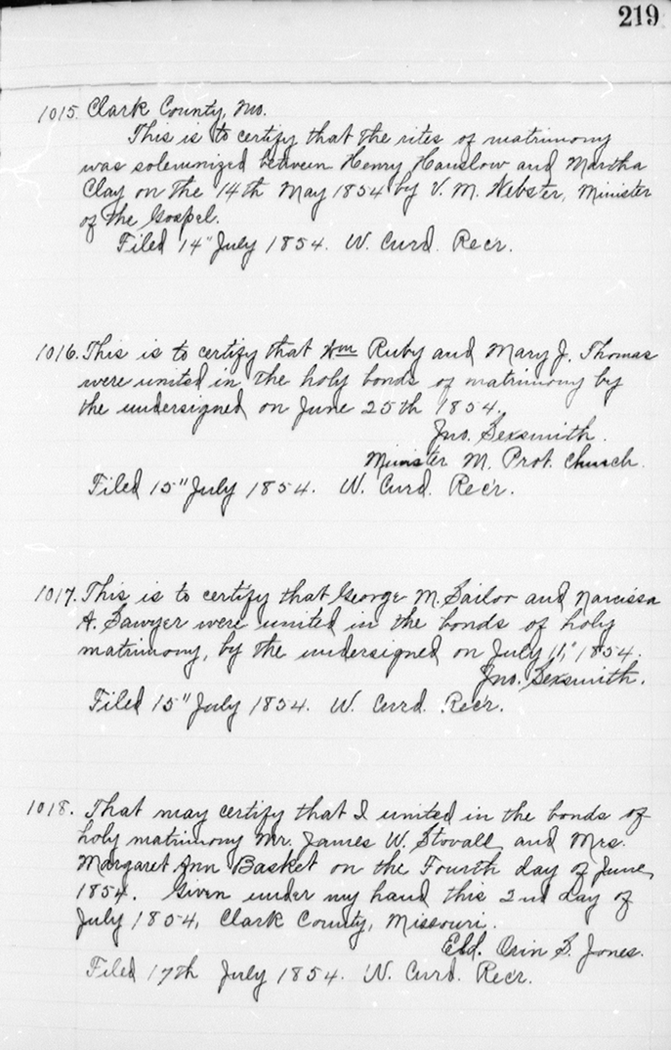 219
1015. Clark County, Mo.
This is to certify that the rites of matrimony
was solemnized between Henry Hanslow and Martha
Clay on the 14th May 1854 by V. M. Webster, Minister
of the Gospel.
Filed 14" July 1854. W. Curd. Recr.
1016. This is to certify that Wm Ruby and Mary J. Thomas
were united in the holy bonds of matrimony by
the undersigned on June 25th 1854.
Jno. Sexsmith.
Minister M. Prot. Church.
Filed 15" July 1854. W. Curd. Rec'r.
1017. This is to certify that George M. Sailor and Narcissa
A. Sawyer were united in the bonds of holy
matrimony, by the undersigned on July 11," 1854.
Jno. Sexsmith.
Filed 15" July 1854. W. Curd. Recr.
1018. That may certify that I united in the bonds of
holy matrimony Mr. James W. Stovall and Mrs.
Margaret Ann Basket on the Fourth day of June,
1854. Given under my hand this 2nd day of
July 1854, Clark County, Missouri.
Eld. Orin S. Jones.
Filed 17th July 1854. W. Curd. Rec'r.